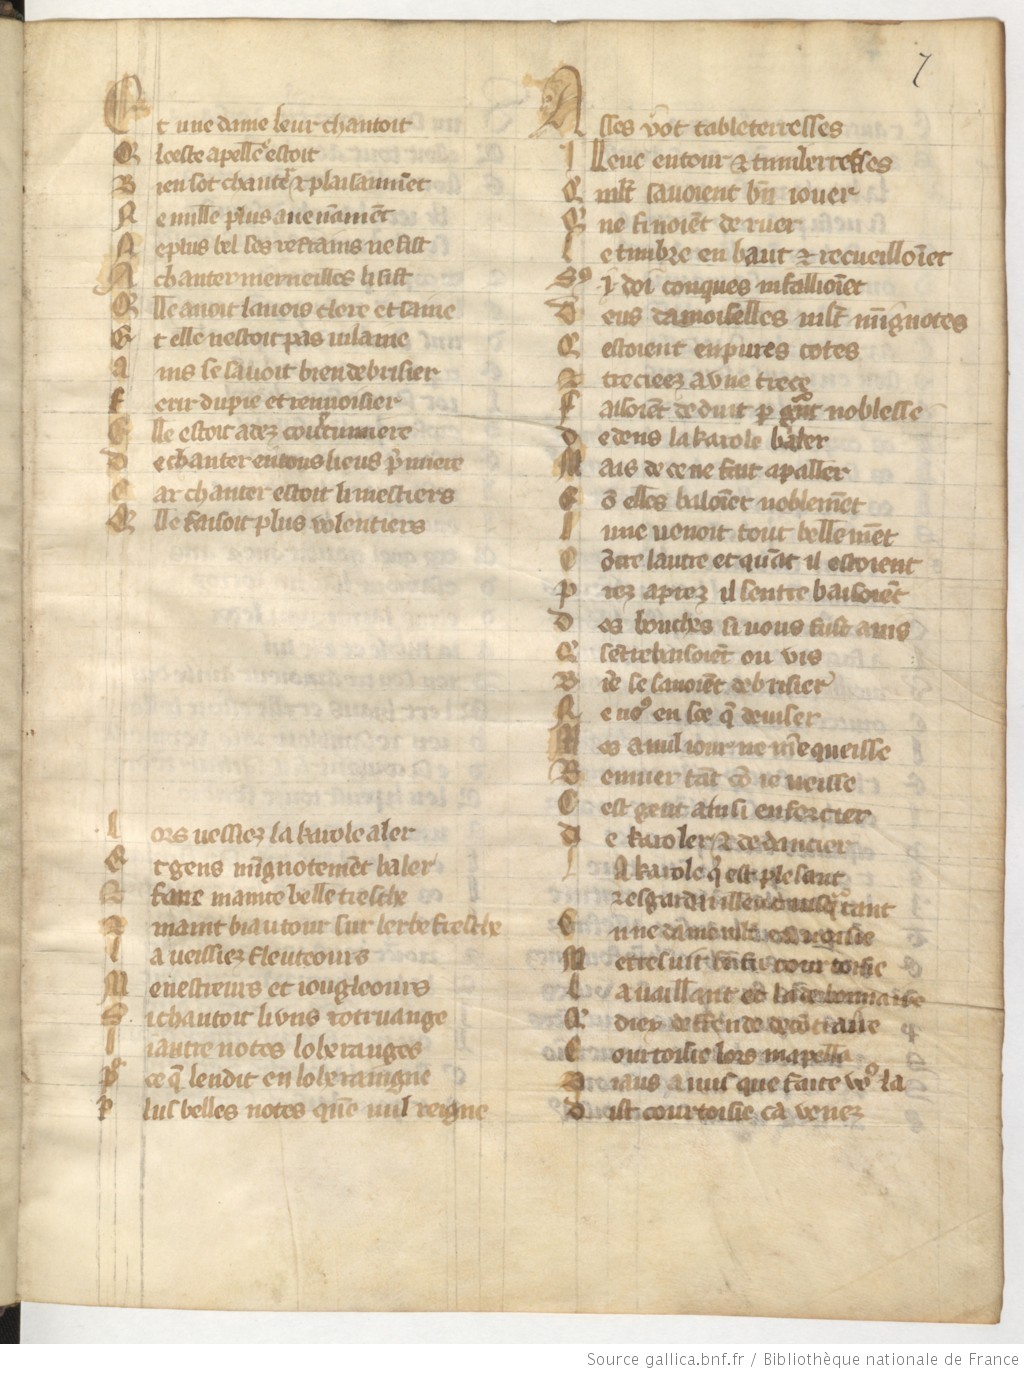 7
Et une dame leur chantoit
Qleeste apellee estoit
Bien sot chanter & plaisanmēt
Ne nulle plus auenāmēt
Ne plus bel ses refrains ne fist
A chanter merueilles li fist
Elle auoit la uois clere et saine
Et elle nestoit pas uilaine
Ains se sauoit bien debrisier
Ferir du pie et renuoisier
Elle estoit adez coustumiere
De chanter en tous lieus p̄miere
Car chanter estoit li mestiers
Elle faisoit plus volentiers
Lors uessiez la karole aler
Et gens mīgnotemēt baler
Et faire mainte belle tresche
Et maint biau tour sur lerbe fresche
La ueissiez fleuteours
Menestreurs et iougleours
Si chantoit li vns rotruange
Li autre notes loheranges
Por ce q̄ len dit en loheraingne
Plus belles notes quē nul reigne
Asses y ot tableterresses
Illeuc entour & timberresses
Et mlt̄ sauoient bn̄ iouer
Qui ne finoiēt de ruer
Le timbre en haut & recueilloiēt
Sus .i. doi conques nı falloiēt
Deus damoiselles mlt̄ mīgnotes
Qestoient en pures cotes
Et treciees a vne trece
Faisoiēt deduit p grāt noblesse
Dedens la karole baler
Mais de ce ne fait a paller
Cō elles baloiēt noblemēt
Lune uenoit tout bellemēt
Cōtre lautre et quāt il estoient
Prez aprez il sentrebaisoiēt
Des bouches si uous fust auis
Qsentrebaisoiēt ou vis
Biē se sauoiēt debrisier
Ne uo⁹ en sce q̄ deuiser
Mes a nul iour ne mē queisse
Remuer tāt cō ie ueisse
Cest gent ainsi enforcier
De karoler & de dancier
La karole q̄ est plesant
Resgardai illec iusq̄ tant
Cune dame mlt enuoisie
Me tresuit ce fu courtoisie
La uaillant et la debonnaire
Q diex deffende de cōtraire
Courtoisie lors mapella
Biaus amis que faite vo⁹ la
Dist courtoisie ca venez
Source gallica.bnf.fr / Bibliothèque nationale de France